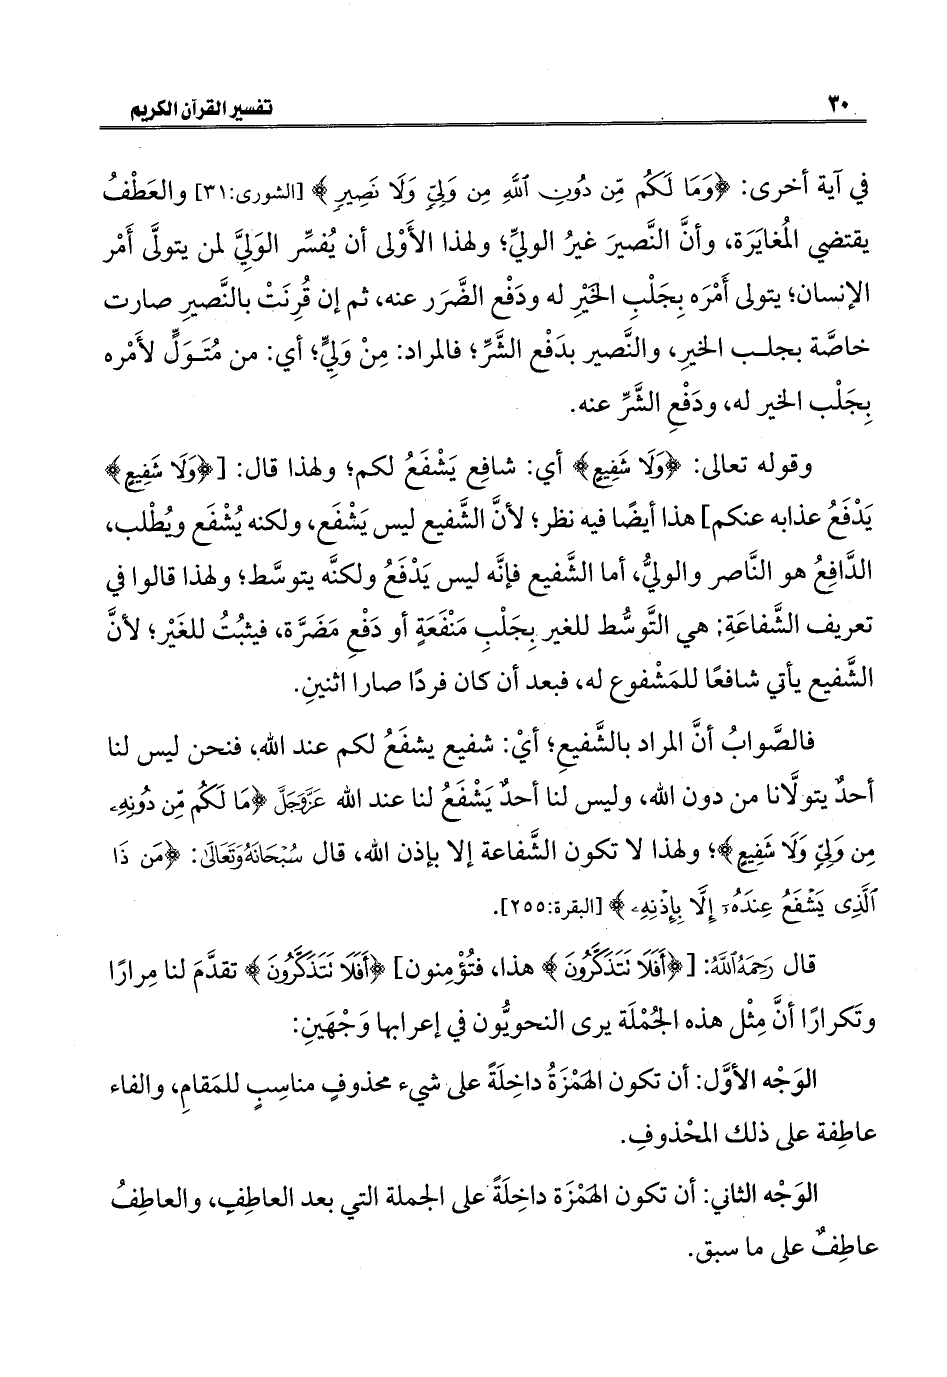 ٣٠
تفسير القرآن الكريم
في آية أخرى: ﴿وَمَا لَكُم مِّن دُونِ ٱللَّهِ مِن وَلِيٍّ وَلَا نَصِيرٍ﴾ [الشورى:٣١] والعَطْفُ
يقتضي المُغايَرة، وأنَّ النَّصيرَ غيرُ الوليِّ؛ ولهذا الأَوْلى أن يُفسِّر الوَليَّ لمن يتولَّى أمْر
الإنسان؛ يتولى أَمْرَه بِجَلْبِ الخَيْرِ له ودَفْعِ الضَّرَر عنه، ثم إن قُرِنَتْ بالنَّصيرِ صارت
خاصَّة بجلب الخيرِ، والنَّصير بدَفْع الشَّرِّ؛ فالمراد: مِنْ وَلِيٍّ؛ أي: من مُتَوَلٍّ لأَمْره
بِجَلْب الخير له، ودَفْعِ الشَّرِّ عنه.
وقوله تعالى: ﴿وَلَا شَفِيعٍ﴾ أي: شافِع يَشْفَعُ لكم؛ ولهذا قال: [﴿وَلَا شَفِيعٍ﴾
يَدْفَعُ عذابه عنكم] هذا أيضًا فيه نظر؛ لأنَّ الشَّفيع ليس يَشْفَع، ولكنه يُشْفَع ويُطْلب،
الدَّافِعُ هو النَّاصر والوليُّ، أما الشَّفيع فإنَّه ليس يَدْفَعُ ولكنَّه يتوسَّط؛ ولهذا قالوا في
تعريف الشَّفاعَةِ: هي التَّوسُّط للغير بِجَلْبِ مَنْفَعَةٍ أو دَفْعِ مَضَرَّة، فيثبُتُ للغَيْر؛ لأنَّ
الشَّفيع يأتي شافعًا للمَشْفوع له، فبعد أن كان فردًا صارا اثنينِ.
فالصَّوابُ أنَّ المراد بالشَّفيع؛ أيْ: شفيع يشفَعُ لكم عند الله، فنحن ليس لنا
أحدٌ يتولَّانا من دون الله، وليس لنا أحدٌ يَشْفَعُ لنا عند الله عَزَّوَجَلَّ ﴿مَا لَكُم مِّن دُونِهِۦ
مِن وَلِيٍّ وَلَا شَفِيعٍ﴾؛ ولهذا لا تكون الشَّفاعة إلا بإذن الله، قال سُبْحَانَهُ وَتَعَالَى: ﴿مَن ذَا
ٱلَّذِى يَشْفَعُ عِندَهُۥٓ إِلَّا بِإِذْنِهِۦ﴾ [البقرة:٢٥٥].
قال رَحِمَهُ اللَّهُ: [﴿أَفَلَا نَتَذَكَّرُونَ﴾ هذا، فتُؤْمِنون] ﴿أَفَلَا نَتَذَكَّرُونَ﴾ تقدَّمَ لنا مِرارًا
وتَكرارًا أنَّ مِثْل هذه الجُمْلَة يرى النحويُّون في إعرابها وَجْهَينِ:
الوَجْه الأوَّل: أن تكون الهَمْزَةُ داخِلَةً على شيء محذوفٍ مناسِبٍ للمَقامِ، والفاء
عاطِفة على ذلك المحْذوفِ.
الوَجْه الثاني: أن تكون الهَمْزَة داخِلَةً على الجملة التي بعد العاطِفِ، والعاطِفُ
عاطِفٌ على ما سبق.